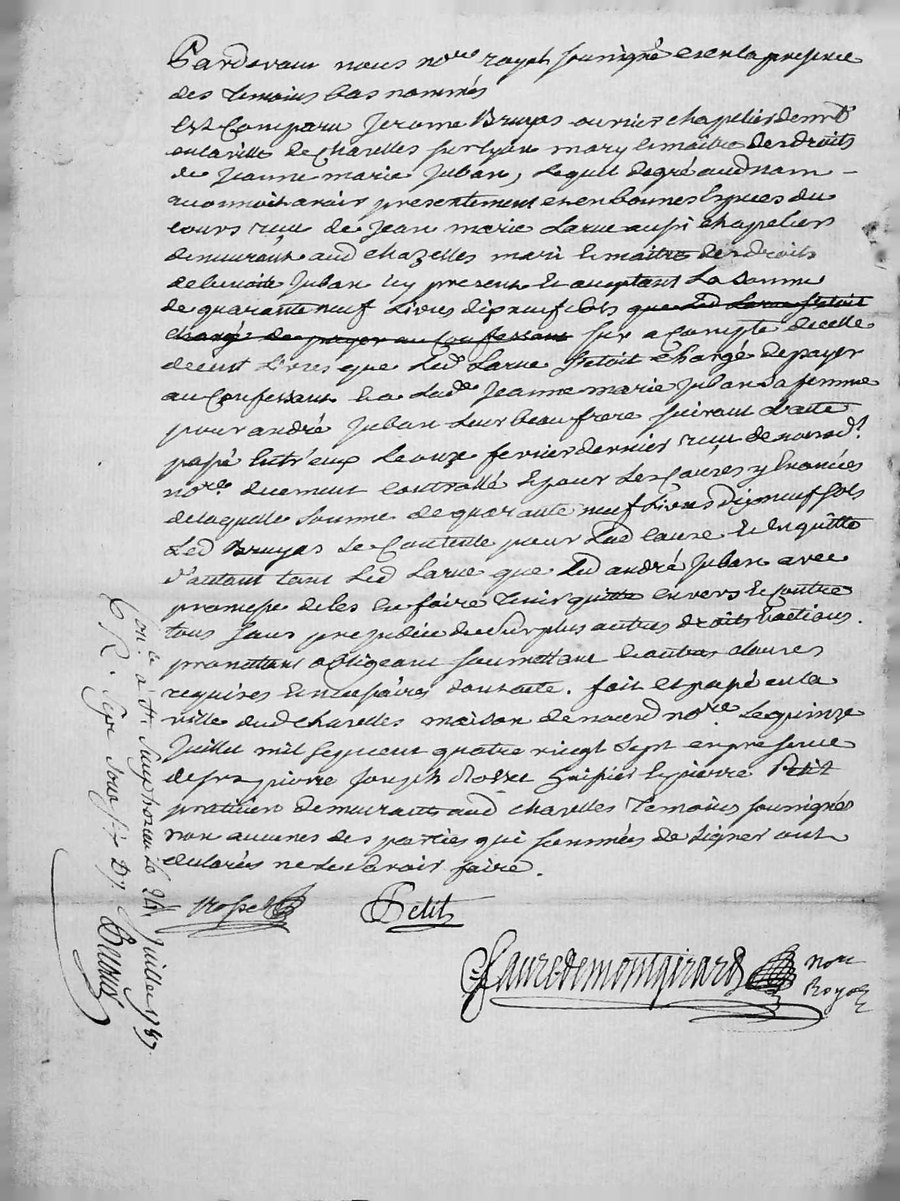 Pardevant nous no.re royal soussigné et en la presence
des temoins bas nommés
Est Comparu Jerome Bruyas ouvrier chapelier demt
en la ville de Chazelles sur lyon mary et maitre des droits
de Jeanne marie Juban, lequel de gré audt nom
reconnoit avoir presentement et en bonnes Espèces du
cours reçu de Jean marie Larue aussi chapelier
demeurant aud Chazelles mari et maitre des droits
de benoite Juban icy present et acceptant La Somme
de quarante neuf Livres dix neuf sols que Led Larue s'etoit
chargé de payer au Confessant sur et a Compte de celle
de cent Livres que Led Larue s'etoit chargé de payer
au Confessant et a Lade Jeanne marie Juban sa femme
pour andré Juban leur beau frere suivant L'acte
passé Entr'eux Le onze fevrier dernier reçu de nousd.
no.re duement controllé et pour Les Causes y Enoncées
de laquelle Somme de quarante neuf Livres dix neuf sols
Led Bruyas Se Contente pour Lad Cause et En quitte
d'autant tant Led Larue que Led andré Juban avec
promesse de les En faire tenir quitte envers et Contre
tous sans prejudice du Surplus autres droits et actions.
promettant obligeant soumettant et autres clauses
requises et necessaires dont acte. fait et passé en la
ville dud Chazelles maison de nousd no.re Le quinze
Juillet mil sept cent quatre vingt sept en presence
de srs pierre Joseph Rosset Greffier et pierre Petit
praticien demeurants aud Chazelles temoins soussignés
non aucunes des parties qui sommées de Signer ont
declarés ne Le Scavoir faire.
Rosset
Petit
Faure de montgirard
nore
Royal
Con.le à St. Simphorien le 24 Juillet 1787
R. sept sous six d.